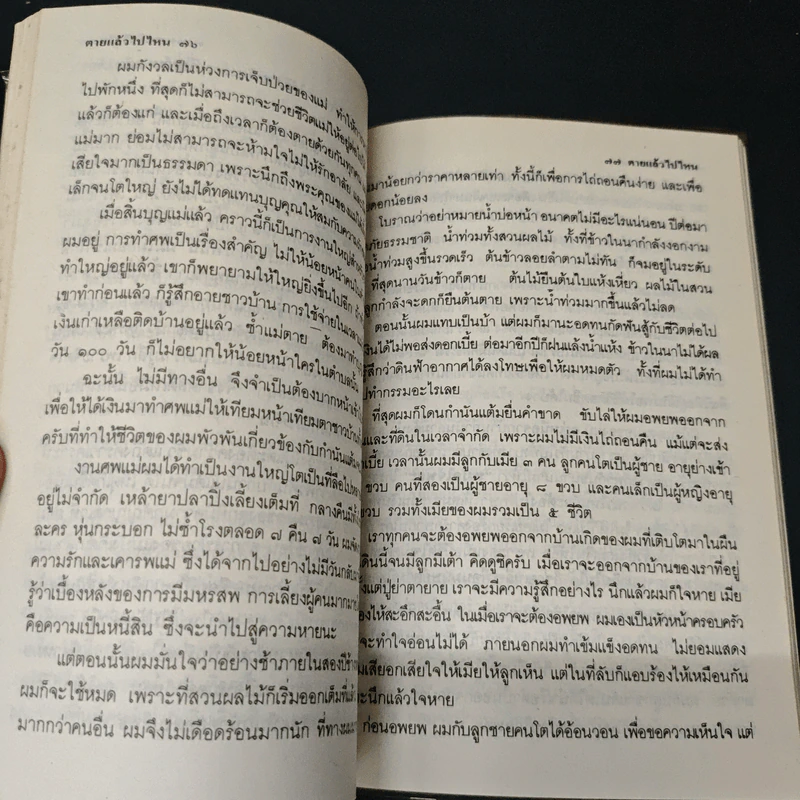 ตายแล้วไปไหน ๗๖
ผมกังวลเป็นห่วงการเจ็บป่วยของแม่ ทำให้
ไปพักหนึ่ง ที่สุดก็ไม่สามารถจะช่วยชีวิตแม่ให้อยู่
แล้วก็ต้องแก่ และเมื่อถึงเวลาก็ต้องตายด้วยกันทุกคน
แม่มาก ย่อมไม่สามารถจะห้ามใจไม่ให้รักอาลัย
เสียใจมากเป็นธรรมดา เพราะนึกถึงพระคุณของแม่
เล็กจนโตใหญ่ ยังไม่ได้ทดแทนบุญคุณให้สมกับความ
เมื่อสิ้นบุญแม่แล้ว คราวนี้ก็เป็นการงานใหญ่
ผมอยู่ การทำศพเป็นเรื่องสำคัญ ไม่ให้น้อยหน้าคน
ทำใหญ่อยู่แล้ว เขาก็พยายามให้ใหญ่ยิ่งขึ้นไปอีก
เขาทำก่อนแล้ว ก็รู้สึกอายชาวบ้าน การใช้จ่ายในเวลา
เงินเก่าเหลือติดบ้านอยู่แล้ว ซ้ำแม่ตาย ต้องมา
วัน ๑๐๐ วัน ก็ไม่อยากให้น้อยหน้าใครในตำบลนั้น
ฉะนั้น ไม่มีทางอื่น จึงจำเป็นต้องบากหน้า
เพื่อให้ได้เงินมาทำศพแม่ให้เทียมหน้าเทียมตาชาวบ้าน
ครับที่ทำให้ชีวิตของผมพัวพันเกี่ยวข้องกับกำนัน
งานศพแม่ผมได้ทำเป็นงานใหญ่โตเป็นที่ลือไป
อยู่ไม่จำกัด เหล้ายาปลาปิ้งเลี้ยงเต็มที่ กลางคืนมี
ละคร หุ่นกระบอก ไม่ซ้ำโรงตลอด ๗ คืน ๗ วัน
ความรักและเคารพแม่ ซึ่งได้จากไปอย่างไม่มีวันกลับ
รู้ว่าเบื้องหลังของการมีมหรสพ การเลี้ยงผู้คนมากมาย
คือความเป็นหนี้สิน ซึ่งจะนำไปสู่ความหายนะ
แต่ตอนนั้นผมมั่นใจว่าอย่างช้าภายในสองปี
ผมก็จะใช้หมด เพราะที่สวนผลไม้ก็เริ่มออกเต็มที่
มากกว่าคนอื่น ผมจึงไม่เดือดร้อนมากนัก ที่ทาง
๗๗ ตายแล้วไปไหน
มาน้อยกว่าราคาหลายเท่า ทั้งนี้ก็เพื่อการไถ่ถอนคืนง่าย และเพื่อ
ดอกน้อยลง
โบราณว่าอย่าหมายน้ำบ่อหน้า อนาคตไม่มีอะไรแน่นอน ปีต่อมา
ภัยธรรมชาติ น้ำท่วมทั้งสวนผลไม้ ทั้งที่ข้าวในนากำลังงอกงาม
น้ำท่วมสูงขึ้นรวดเร็ว ต้นข้าวลอยลำตามไม่ทัน ก็จมอยู่ในระดับ
ที่สุดนานวันข้าวก็ตาย ต้นไม้ยืนต้นใบแห้งเหี่ยว ผลไม้ในสวน
ลูกกำลังจะดกก็ยืนต้นตาย เพราะน้ำท่วมมากขึ้นแล้วไม่ลด
ตอนนั้นผมแทบเป็นบ้า แต่ผมก็มานะอดทนกัดฟันสู้กับชีวิตต่อไป
เงินได้ไม่พอส่งดอกเบี้ย ต่อมาอีกปีก็ฝนแล้งน้ำแห้ง ข้าวในนาไม่ได้ผล
รู้สึกว่าดินฟ้าอากาศได้ลงโทษเพื่อให้ผมหมดตัว ทั้งที่ผมไม่ได้ทำ
ทำกรรมอะไรเลย
ที่สุดผมก็โดนกำนันแต้มยื่นคำขาด ขับไล่ให้ผมอพยพออกจาก
และที่ดินในเวลาจำกัด เพราะผมไม่มีเงินไถ่ถอนคืน แม้แต่จะส่ง
เบี้ย เวลานั้นผมมีลูกกับเมีย ๓ คน ลูกคนโตเป็นผู้ชาย อายุย่างเข้า
ขวบ คนที่สองเป็นผู้ชายอายุ ๘ ขวบ และคนเล็กเป็นผู้หญิงอายุ
ขวบ รวมทั้งเมียของผมรวมเป็น ๕ ชีวิต
เราทุกคนจะต้องอพยพออกจากบ้านเกิดของผมที่เติบโตมาในผืน
ดินนี้จนมีลูกมีเต้า คิดดูซิครับ เมื่อเราจะออกจากบ้านของเราที่อยู่
แต่ปู่ย่าตายาย เราจะมีความรู้สึกอย่างไร นึกแล้วผมก็ใจหาย เมีย
ร้องไห้สะอึกสะอื้น ในเมื่อเราจะต้องอพยพ ผมเองเป็นหัวหน้าครอบครัว
จะทำใจอ่อนไม่ได้ ภายนอกผมทำเข้มแข็งอดทน ไม่ยอมแสดง
เสียอกเสียใจให้เมียให้ลูกเห็น แต่ในที่ลับก็แอบร้องไห้เหมือนกัน
นึกแล้วใจหาย
ก่อนอพยพ ผมกับลูกชายคนโตได้อ้อนวอน เพื่อขอความเห็นใจ แต่